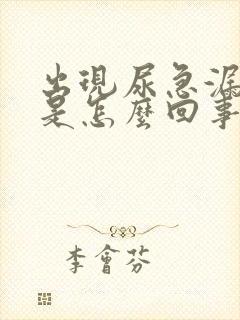 出現尿急漏
是怎麼回事
李會芬